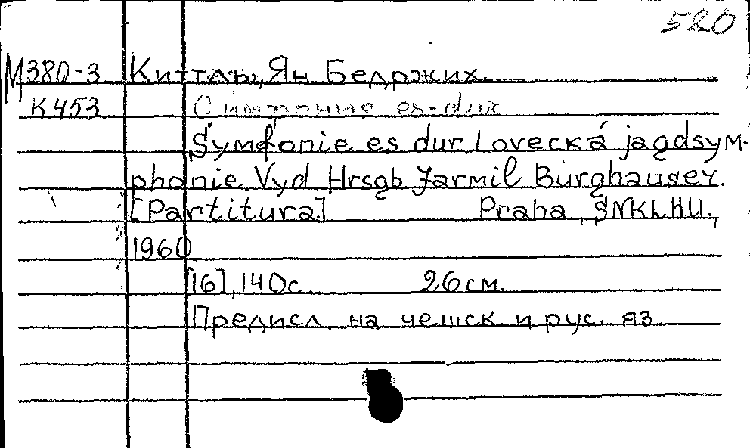 580
М380-3 Киттль, Ян Бедржих
К453 Симфония es-dur
Symfonie es dur Lovecká jagdsym-
phonie. Vyd Hrsgb Jarmil Burghauser.
[Partitura] Praha, SNKLHU.,
1960
[16], 140с. 26см.
Предисл. на чешск и рус. яз